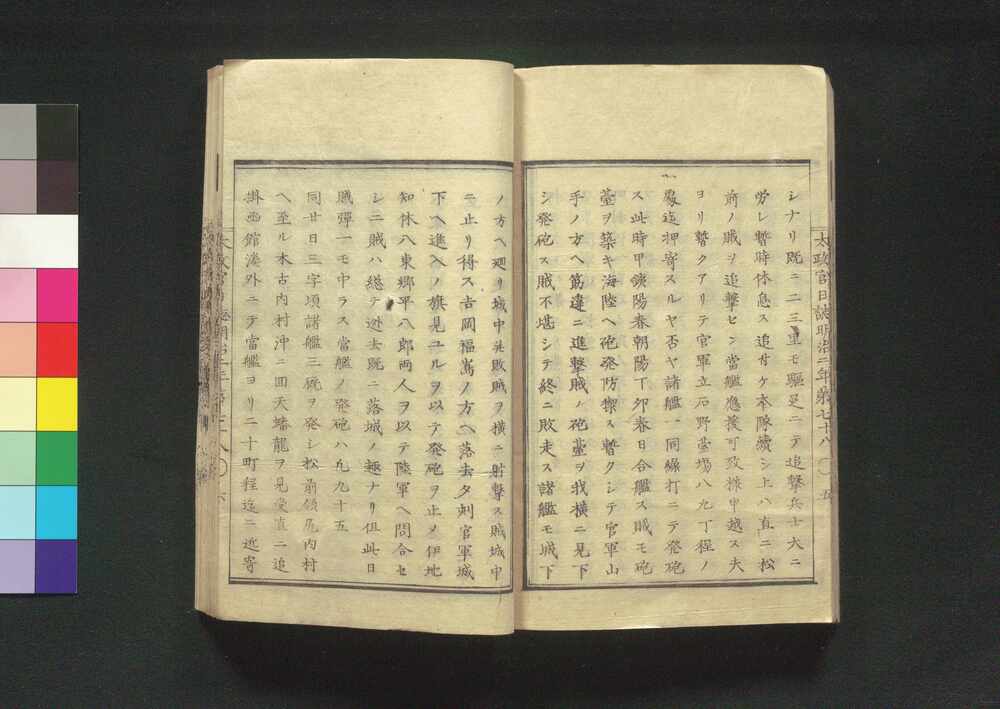 太政官日誌明治二年第七十八 〇 五
シナリ既ニ二三里モ驅足ニテ追撃兵士大ニ
労レ暫時休息ス追付ケ本隊續シ上ハ直ニ松
前ノ賊ヲ追撃セン當艦應援可致樣申越ス夫
ヨリ暫クアリテ官軍立石野臺場八九丁程ノ
處迄押寄スルヤ否ヤ諸艦一同線打ニテ発砲
ス此時甲鉄陽春朝陽丁卯春日合艦ス賊モ砲
臺ヲ築キ海陸ヘ砲発防禦ス暫クシテ官軍山
手ノ方ヘ筋違ニ進撃賊ノ砲臺ヲ我横ニ見下
シ発砲ス賊不堪シテ終ニ敗走ス諸艦モ城下
ノ方ヘ廻リ城中並敗賊ヲ横ニ射撃ス賊城中
ニ止リ得ス吉岡福嶌ノ方ヘ落去タ刺官軍城
下ヘ進入ノ旗見ユルヲ以テ発砲ヲ止メ伊地
知休八東郷平八郎両人ヲ以テ陸軍ヘ問合セ
シニ賊ハ総テ迯去既ニ落城ノ趣ナリ但此日
賊彈一モ中ラス當艦ノ発砲ハ九九十五
同廿日三字頃諸艦三厩ヲ発シ松前領尻内村
ヘ至ル木古内村沖ニ回天蟠龍ヲ見受直ニ追
掛函館湊外ニテ當艦ヨリ二十町程迄ニ近寄